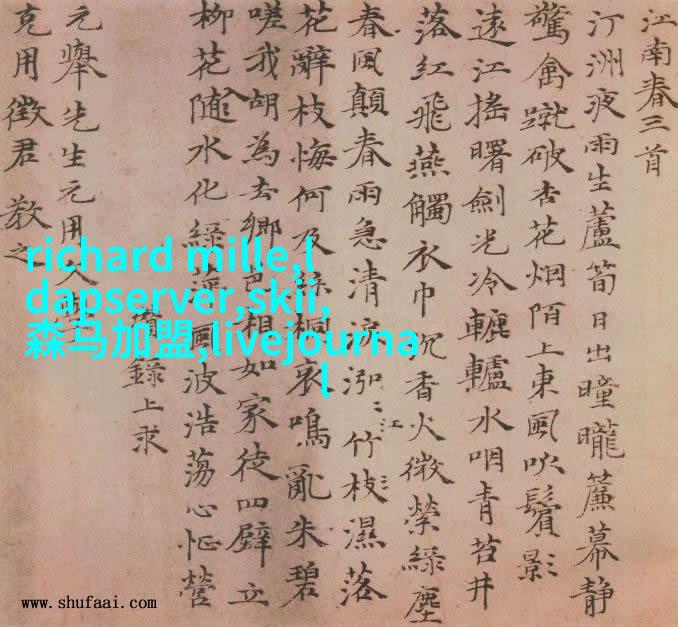 江南春三首
汀洲夜雨生蘆筍日出曈曨簾幕静
驚禽蹴破杏花烟陌上東風吹鬢影
遠江搖曙劍光冷轆轤水咽青苔井
落红飛燕觸衣巾沉香火微縈緑塵
春風顛春雨急清淚泓ミ江竹枝濕落
花辭枝悔何及絲桐哀鳴亂朱碧
嗟我胡為去鄉邑相如家徒四壁立
柳花隨水化緑萍風波浩蕩心怔營
錄上求
元舉先生元用文學
克用徵君 教之
richard mille,l
dapserver,skii,
森马加盟,livejourna
l
www.shufaai.com